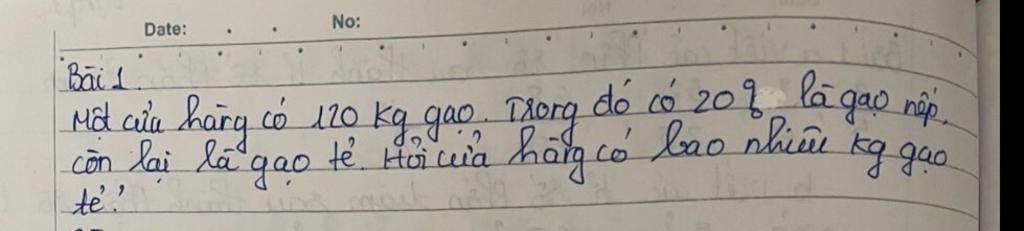 Date: . . No:
Bài 1.
Một cửa hàng có 120 kg gạo. Trong đó có 20% là gạo nếp,
còn lại là gạo tẻ. Hỏi cửa hàng có bao nhiêu kg gạo
tẻ?